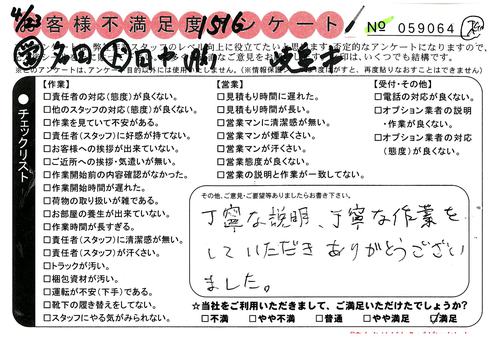 4/23
お客様不満足度1516アンケート!
No 059064
営 名田 土 田中(修) 岐阜市
チェックリスト
【作業】
□責任者の対応(態度)が良くない。
□他のスタッフの対応(態度)が良くない。
□作業を見ていて不安がある。
□責任者(スタッフ)に好感が持てない。
□お客様への挨拶が出来ていない。
□ご近所への挨拶・気遣いが無い。
□作業開始前の内容確認がなかった。
□作業開始時間が遅れた。
□荷物の取り扱いが雑である。
□お部屋の養生が出来ていない。
□作業時間が長すぎる。
□責任者(スタッフ)に清潔感が無い。
□責任者(スタッフ)が汗くさい。
□トラックが汚い。
□梱包資材が汚い。
□運転が不安(下手)である。
□靴下の履き替えをしてない。
□スタッフにやる気がみられない。
【営業】
□見積もり時間に遅れた。
□見積もり時間が長い。
□営業マンに清潔感が無い。
□営業マンが煙草くさい。
□営業マンが汗くさい。
□営業態度が良くない。
□営業の説明と作業が一致してない。
【受付・その他】
□電話の対応が良くない。
□オプション業者の説明
・作業が良くない。
□オプション業者の対応
(態度)が良くない。
その他、ご意見・ご要望等ありましたらお書き下さい。
丁寧な説明、丁寧な作業を
していただきありがとうござい
ました。
☆当社をご利用いただきまして、ご満足いただけたでしょうか?
□不満 □やや不満 □普通 □やや満足 ☑満足